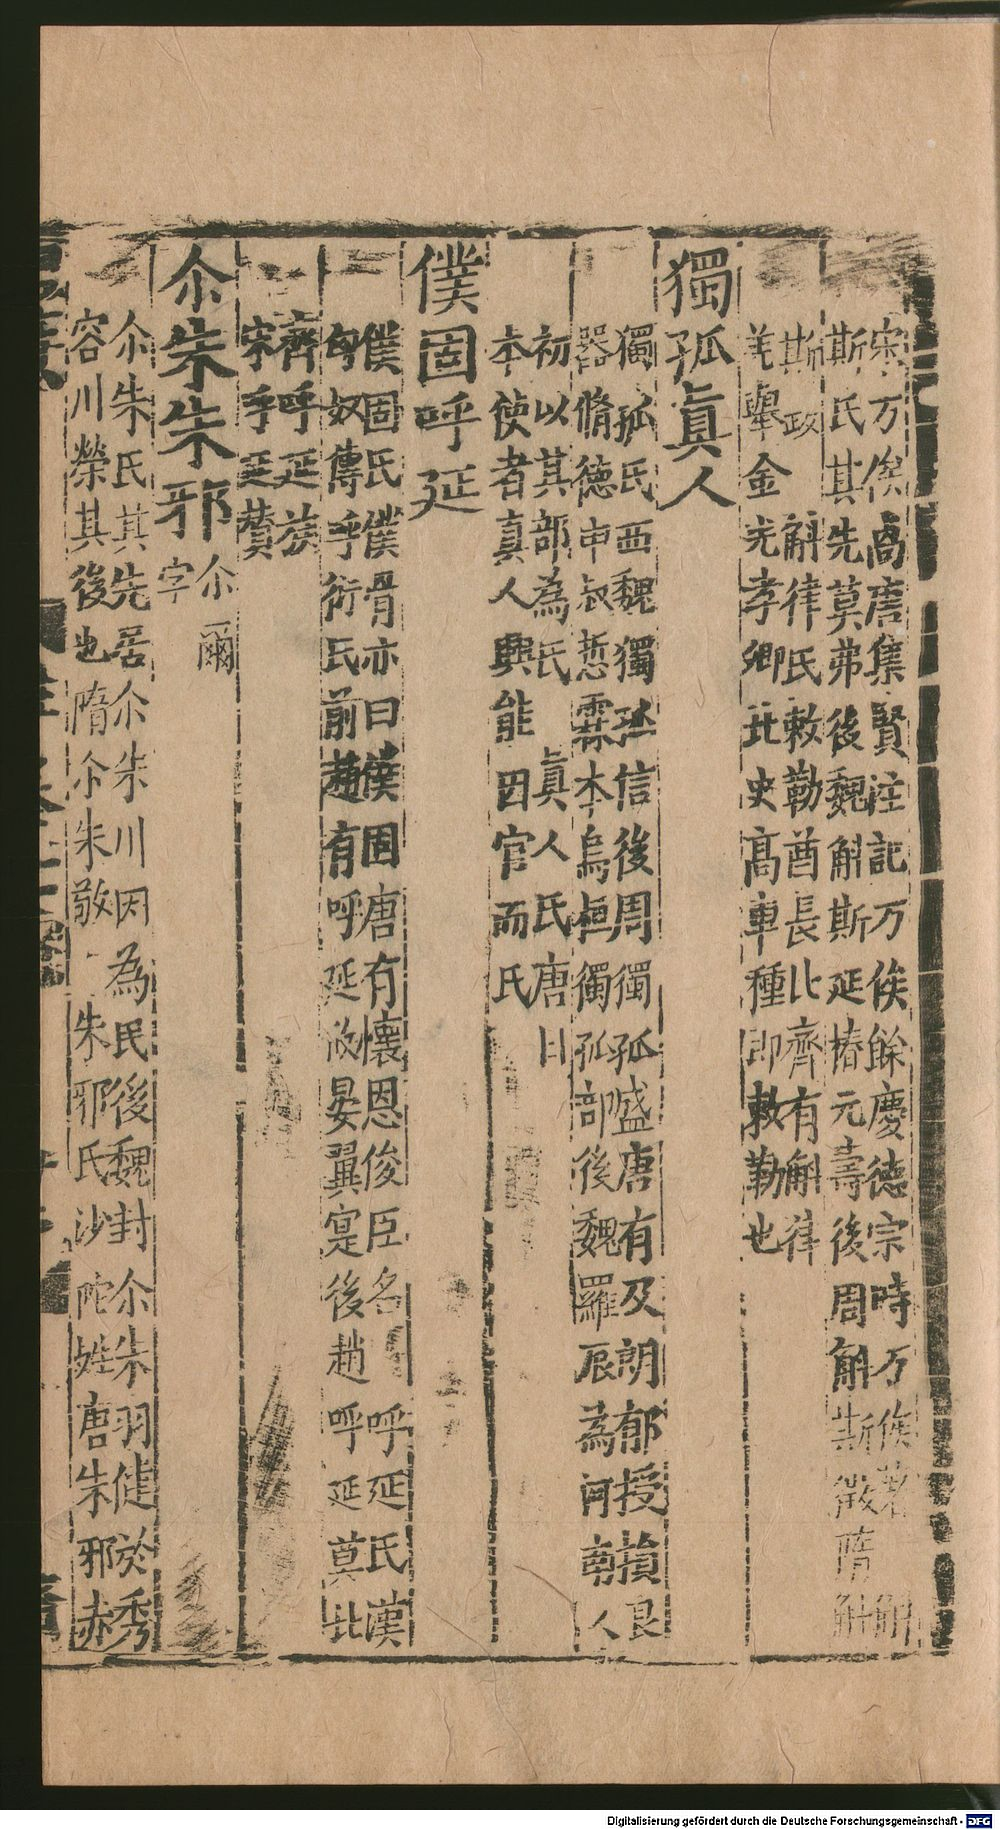 宋万俟卨唐集賢注記万俟餘慶德宗時万俟著 解
斯氏其先莫弗後魏斛斯延椿元壽後周斛斯徵隋斛
斯政 斛律氏敕勒酋長比齊有斛律
羌舉金光孝卿北史髙車種即敕勒也
獨孤真人
獨孤氏西魏獨孤信後周獨孤盛唐有及朗郁授損良
器脩德申叔悊霖本烏桓獨孤部後魏羅辰為河南人
初以其部為氏 真人氏唐日
本使者真人興能因官而氏
僕固呼延
僕固氏僕骨亦曰僕固唐有懷恩俊臣名 呼延氏漢
匈奴傳呼衍氏前趙有呼延攸晏翼寔後趙呼延莫北
齊呼延族
宋呼延贊
尒朱朱邪 尒爾
字
尒朱氏其先居尒朱川因為民後魏封尒朱羽健於秀
容川榮其後也隋尒朱敞 朱邪氏沙陀姓唐朱邪赤
Digitalisierung gefördert durch die Deutsche Forschungsgemeinschaft - DFG